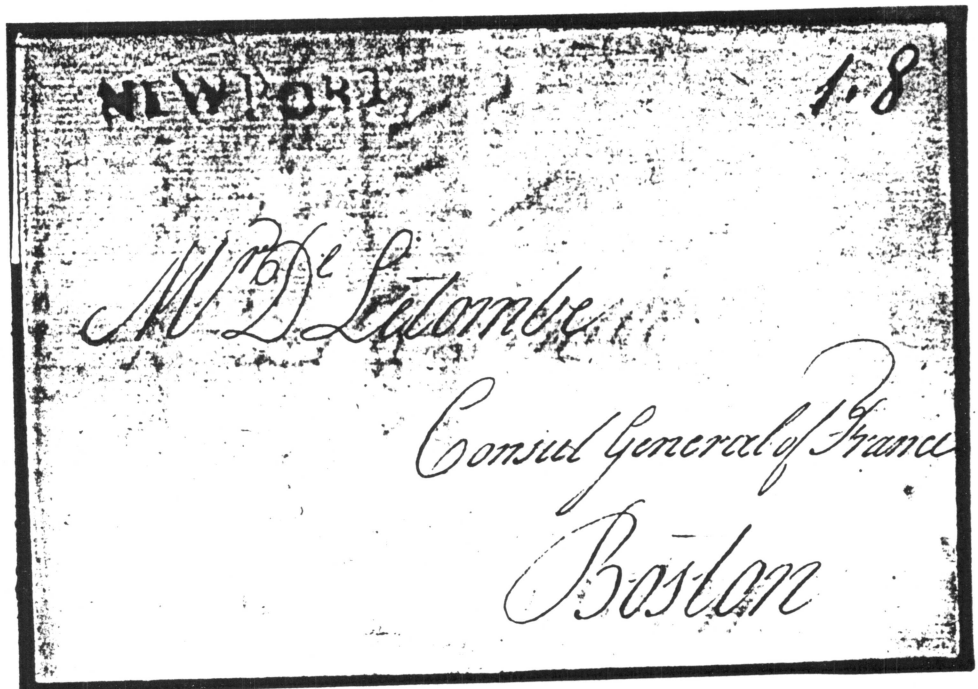 NEWPORT 1.8
Mr De Létombe
Consul General of France
Boston